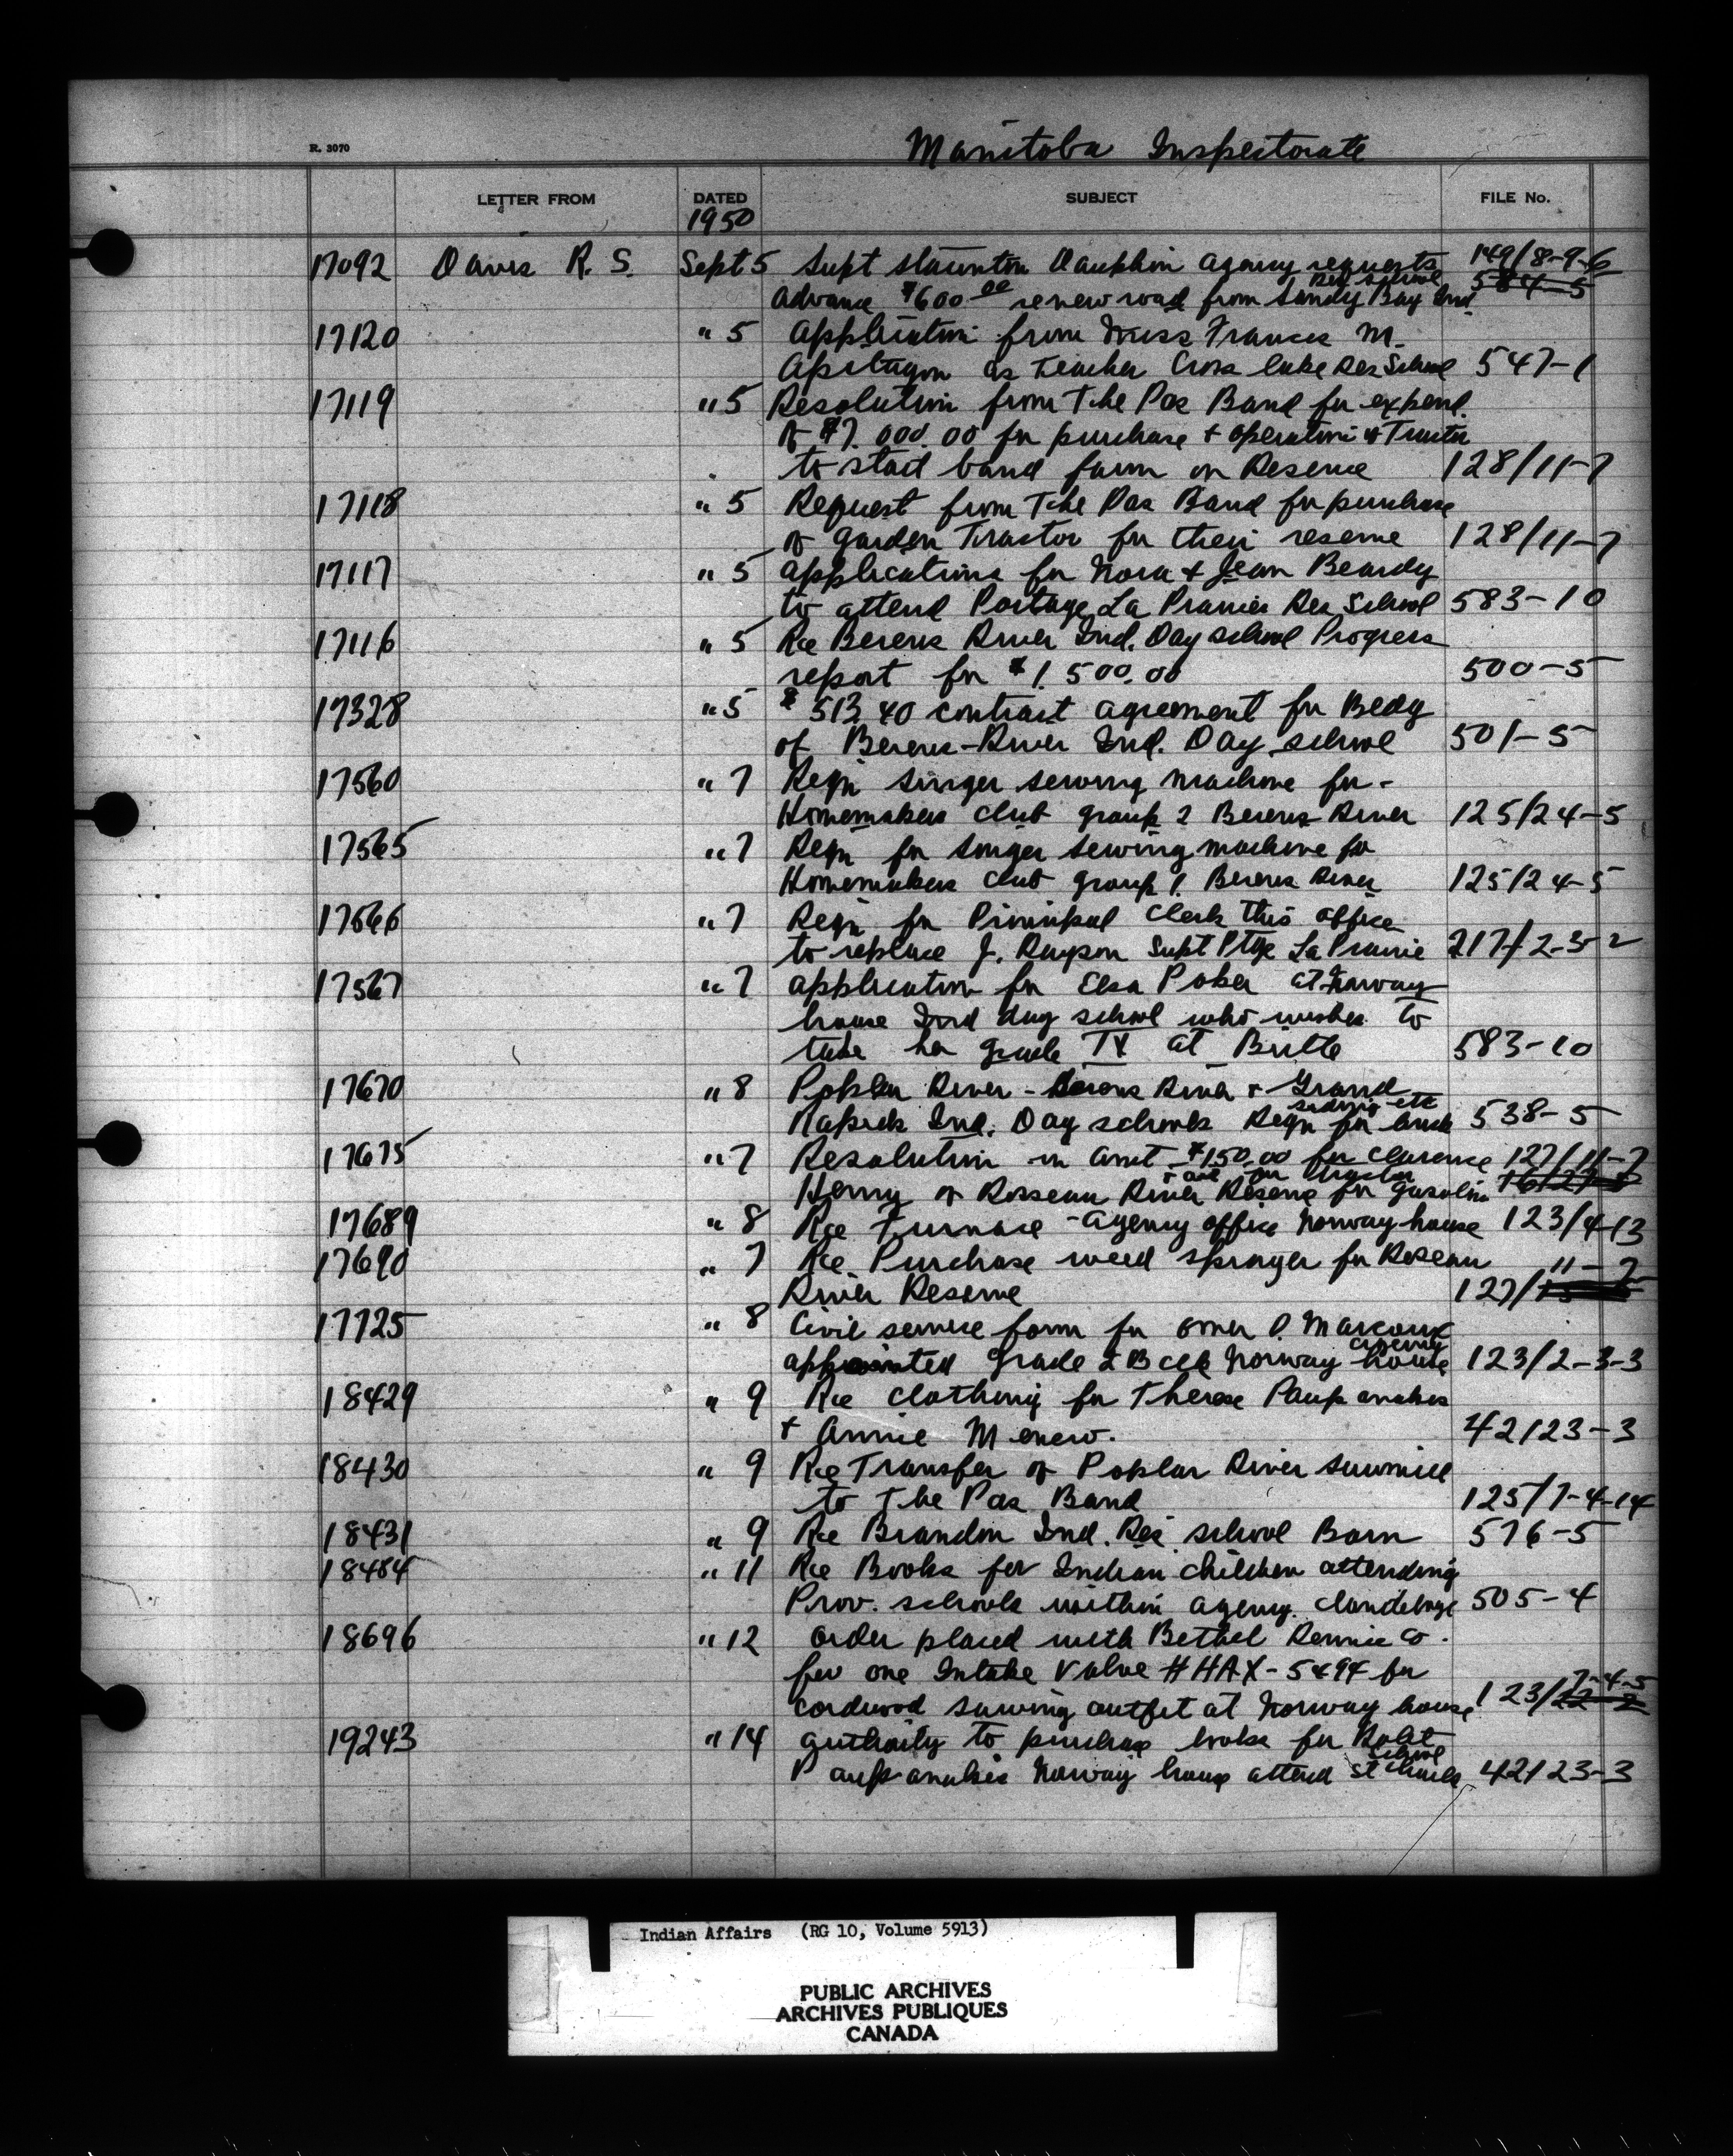 Manitoba Inspectorate
R. 3070
LETTER FROM DATED SUBJECT FILE No.
1950
17092 Davis R. S. Sept 5 Supt Staunton Dauphin agency requests 149/8-9-6
Res school 584-5
advance $600.00 renew road from Sandy Bay Ind.
17120 " 5 Application from Miss Frances M.
as Teacher Cross Lake Res School 547-1
17119 " 5 Resolution from The Pas Band for expend.
of $7,000.00 for purchase + operation of Tractor
to start band farm on Reserve 128/11-7
17118 " 5 Request from The Pas Band for purchase
of garden Tractor for their reserve 128/11-7
17117 " 5 applications for Nora + Jean Beardy
to attend Portage La Prairie Res School 583-10
17116 " 5 Re Berens River Ind. Day school Progress
report for $1,500.00 500-5
17328 " 5 $513.40 contract agreement for Bldg
of Berens-River Ind. Day school 501-5
17560 " 7 Reqn singer sewing machine for -
Homemakers club group 2 Berens River 125/24-5
17565 " 7 Reqn for singer sewing machine for
Homemakers club group 1. Berens River 125/24-5
17566 " 7 Reqn for Principal Clerk this office
to replace J. Supt Ptge La Prairie 217/2-3-2
17567 " 7 application for Elsa at Norway
house Ind day school who wishes to
take her grade IX at Birtle 583-10
17670 " 8 Poplar River - Berens River + Grand
siding etc
Rapids Ind. Day schools Reqn for brick 538-5
17675 " 7 Resolution in amt $150.00 for Clarence 127/11-7
+ oil for tractor
Henry of Roseau River Reserve for gasoline
17689 " 8 Re Furnace - agency office Norway house 123/4-13
17690 " 7 Re Purchase weed sprayer for Roseau 11-7
River Reserve 127/
17725 " 8 Civil service form for Omer P. Marcoux
agency
appointed grade 2B clk Norway house 123/2-3-3
18429 " 9 Re clothing for Therese Paupanakis
+ Annie Menow. 42/23-3
18430 " 9 Re Transfer of Poplar River sawmill
to The Pas Band 125/7-4-14
18431 " 9 Re Brandon Ind. Res school Barn 576-5
18484 " 11 Re Books for Indian children attending
Prov. schools within agency. Clandeboye 505-4
18696 " 12 order placed with Bethel Rennie Co.
for one Intake Valve # HAX-5494 for 7-4-5
cordwood sawing outfit at Norway house 123/22-2
19243 " 14 authority to purchase books for Robt
school
Paupanakis Norway house attend St Charles 42/23-3
Indian Affairs (RG 10, Volume 5913)
PUBLIC ARCHIVES
ARCHIVES PUBLIQUES
CANADA